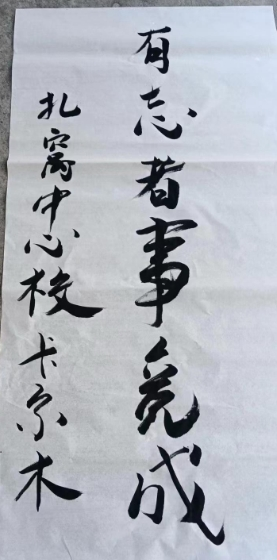 有志者事竟成
扎窝中心校卡尔木